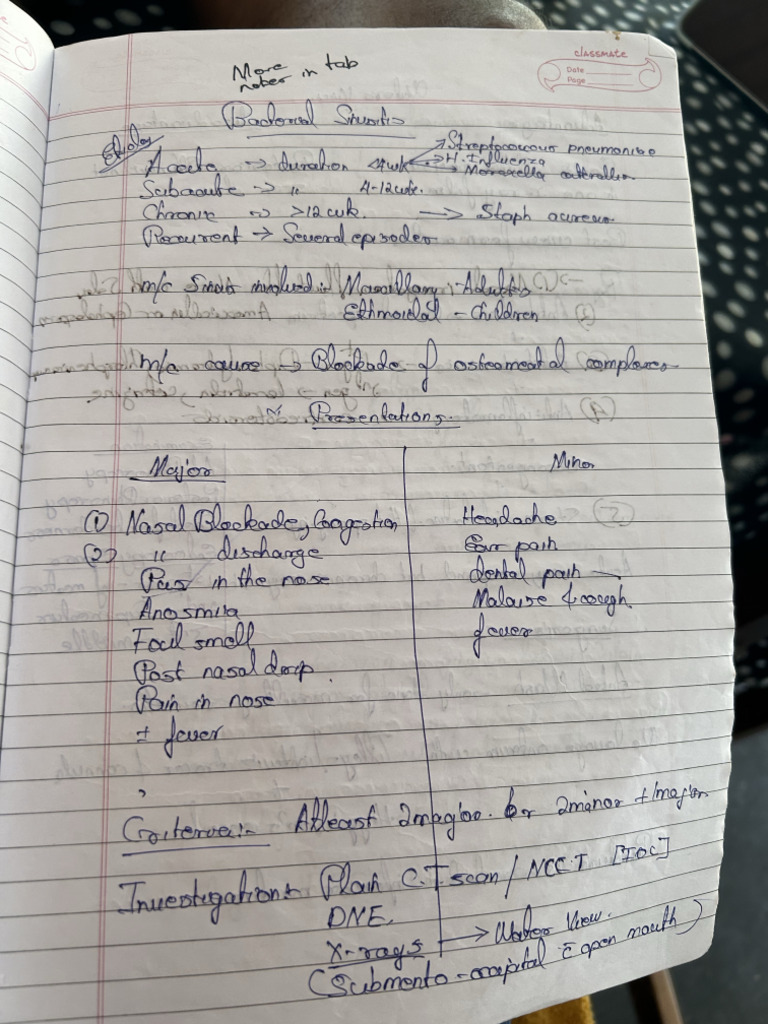 classmate
Date
Page
More
notes in tab
Bacterial Sinusitis
Etiology
Acute -> duration <4wk -> Streptococcus pneumoniae
-> H. Influenza
-> Moraxella catarrhalis
Subacute -> " 4-12wk.
Chronic -> >12 wk. -> Staph aureus
Recurrent -> Several episodes
m/c Sinus involved :- Maxillary :- Adults
Ethmoidal - Children
m/c cause -> Blockade of osteomeatal complex
Presentations.
Major
Minor
① Nasal Blockade, Congestion
② " discharge
Pus in the nose
Anosmia
Foul smell
Post nasal drip.
Pain in nose
± fever
Headache
Ear pain
dental pain
Malaise & cough
fever
Criteria:- Atleast 2 major or 2 minor + 1 major
Investigation:- Plain C.T scan / NCCT [IOC]
DNE.
X-rays -> Water View.
(Submento-occipital c̄ open mouth)